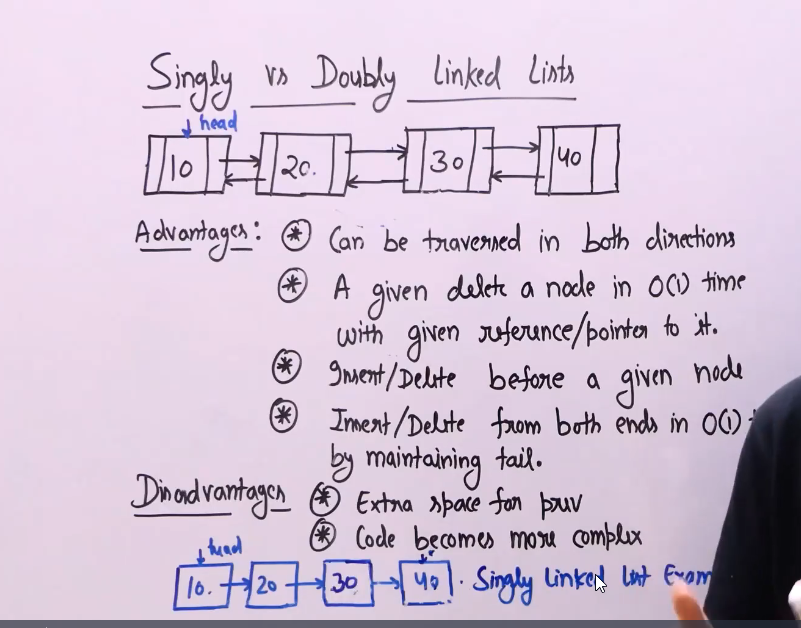 Singly vs Doubly Linked Lists
head
10 20. 30 40
Advantages: * Can be traversed in both directions
* A given delete a node in O(1) time
with given reference/pointer to it.
* Insert/Delete before a given node
* Insert/Delete from both ends in O(1)
by maintaining tail.
Disadvantages * Extra space for prev
* Code becomes more complex
head
10. 20 30 40. Singly Linked List Exam